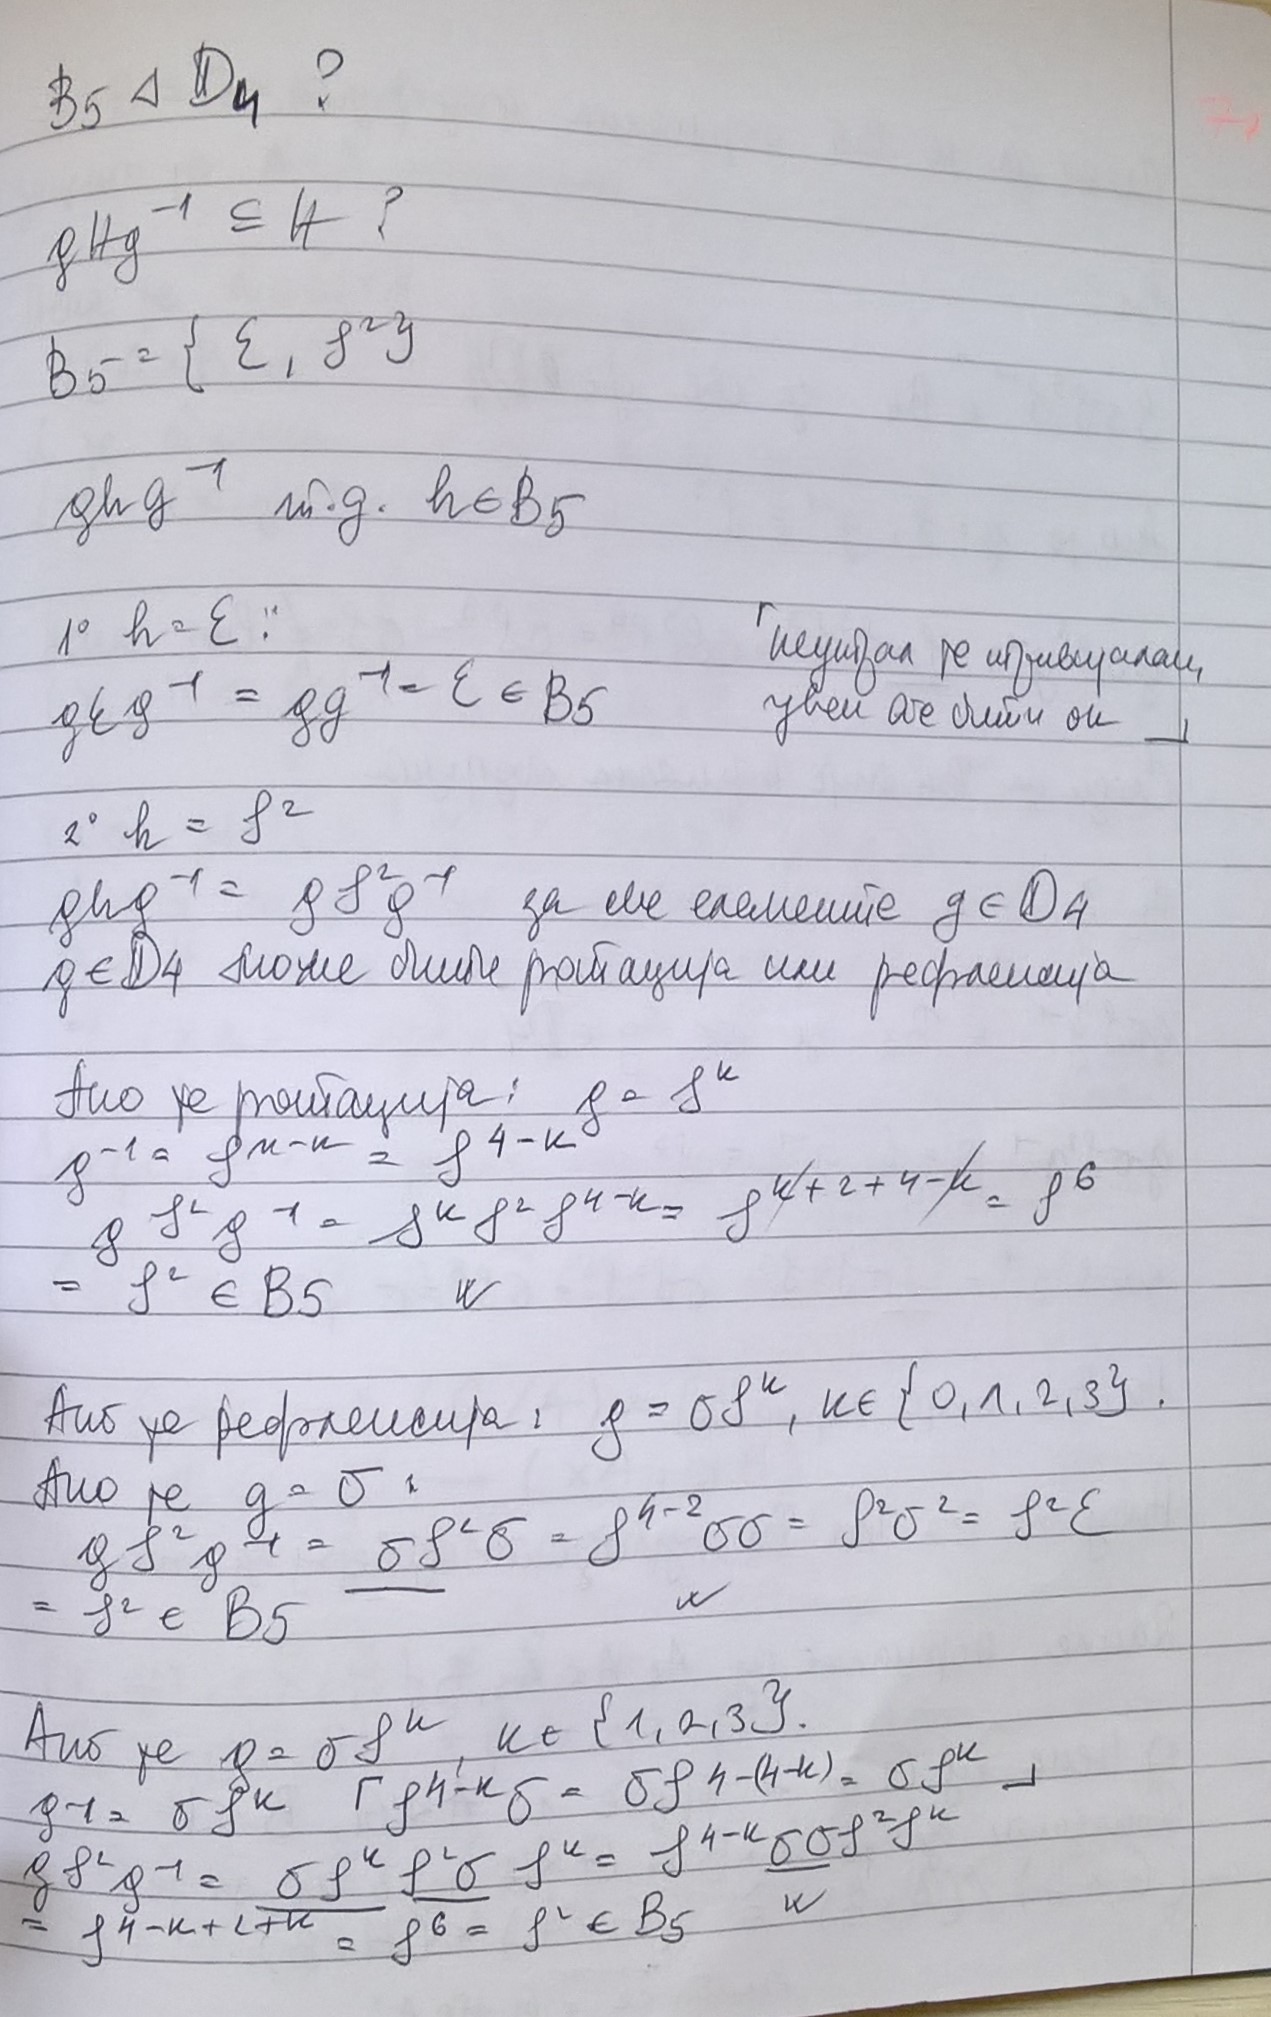 B5 ⊲ D4 ?
gHg⁻¹ ⊆ H ?
B5 = { ε, ρ² }
ghg⁻¹ т.д. h ∈ B5
1° h = ε :
gεg⁻¹ = gg⁻¹ = ε ∈ B5
⌈ неутрал је тривијалан,
увек ће бити ок ⌋
2° h = ρ²
ghg⁻¹ = gρ²g⁻¹ за све елементе g ∈ D4
g ∈ D4 може бити ротација или рефлексија
Ако је ротација: g = ρᵏ
g⁻¹ = ρⁿ⁻ᵏ = ρ⁴⁻ᵏ
gρ²g⁻¹ = ρᵏρ²ρ⁴⁻ᵏ = ρᵏ⁺²⁺⁴⁻ᵏ = ρ⁶
= ρ² ∈ B5 ✓
Ако је рефлексија: g = σρᵏ, k ∈ {0,1,2,3}.
Ако је g = σ :
gρ²g⁻¹ = σρ²σ = ρ⁴⁻²σσ = ρ²σ² = ρ²ε
= ρ² ∈ B5 ✓
Ако је g = σρᵏ, k ∈ {1,2,3}.
g⁻¹ = σρᵏ ⌈ ρ⁴⁻ᵏσ = σρ⁴⁻⁽⁴⁻ᵏ⁾ = σρᵏ ⌋
gρ²g⁻¹ = σρᵏρ²σρᵏ = ρ⁴⁻ᵏσσρ²ρᵏ
= ρ⁴⁻ᵏ⁺²⁺ᵏ = ρ⁶ = ρ² ∈ B5 ✓